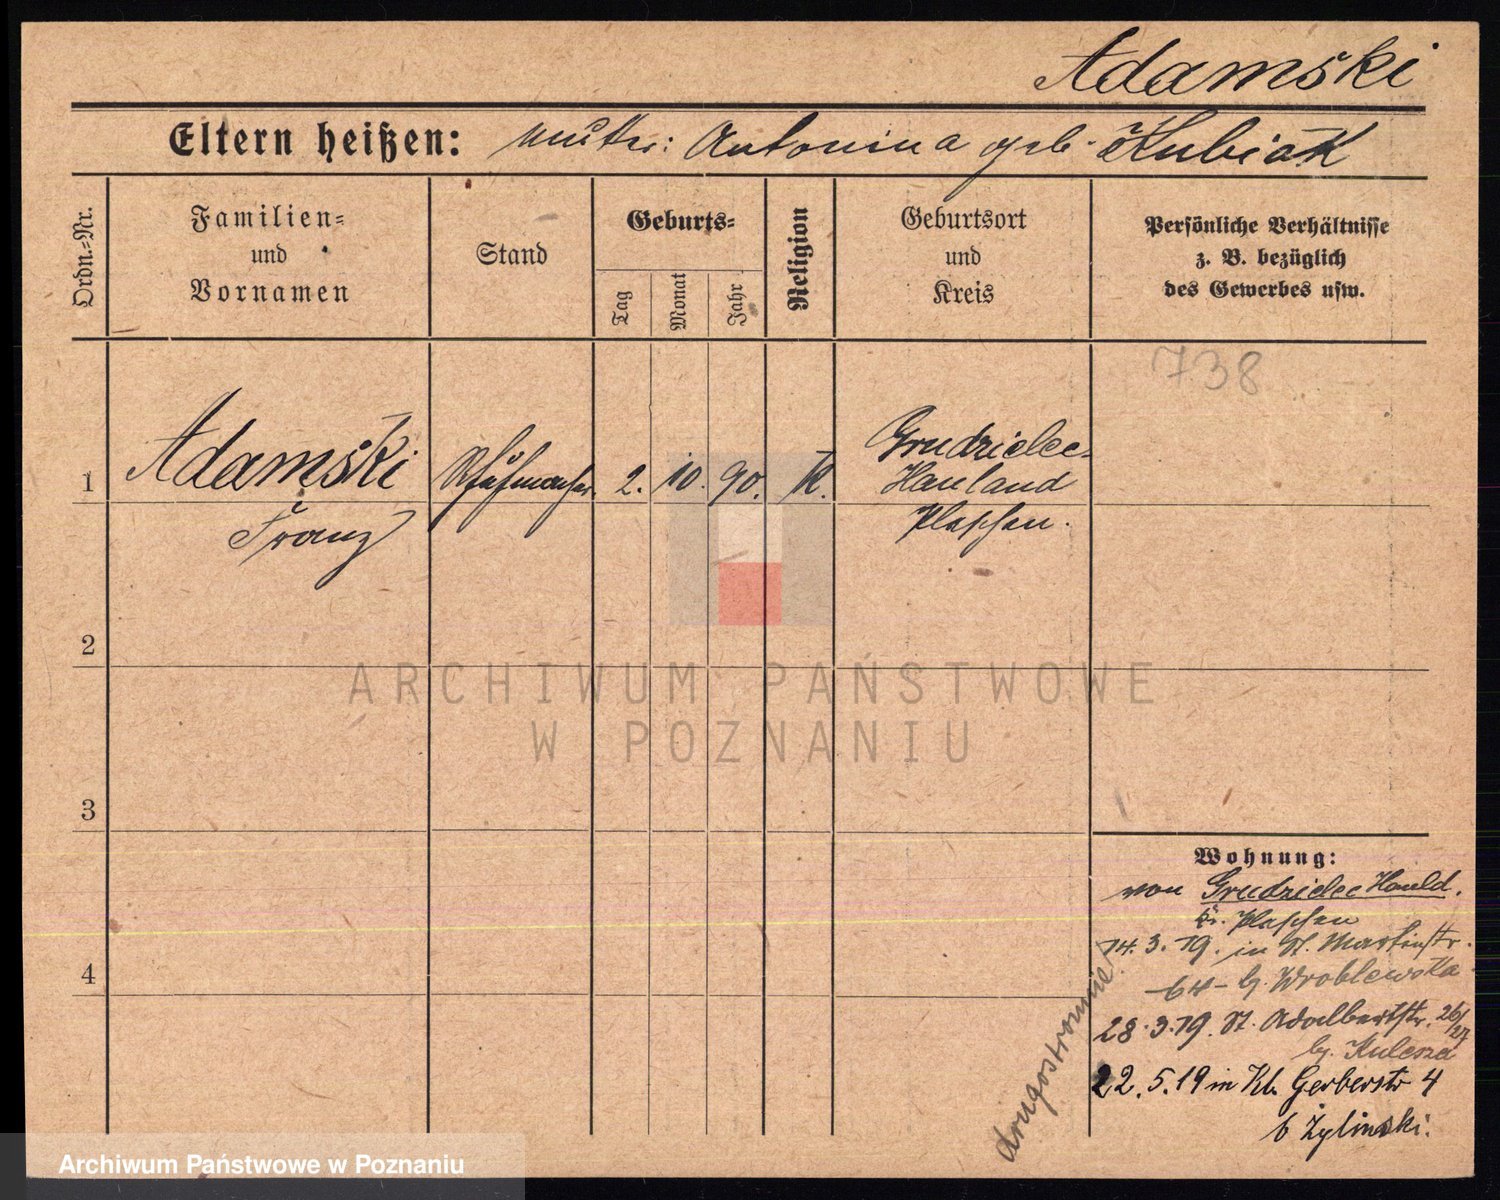 Adamski
Eltern heißen: Mutter: Antonina geb. Kubiak
Ordn.=Nr.
Familien=
und
Vornamen
Stand
Geburts=
Tag
Monat
Jahr
Religion
Geburtsort
und
Kreis
Persönliche Verhältnisse
z. B. bezüglich
des Gewerbes usw.
738
1
Adamski
Franz
Schuhmacher
2. 10. 90. K.
Grudzielec-
Hauland
Pleschen.
2
3
4
ARCHIWUM PAŃSTWOWE
W POZNANIU
Wohnung:
von Grudzielec Hauld.
Kr. Pleschen
14. 3. 19. in St. Martinstr.
64 - b. Wroblewska
28. 3. 19. St. Adalbertstr. 26/27
by. Kulesza
22. 5. 19 in Kl. Gerberstr 4
b Żylinski.
drugostronnie!
Archiwum Państwowe w Poznaniu